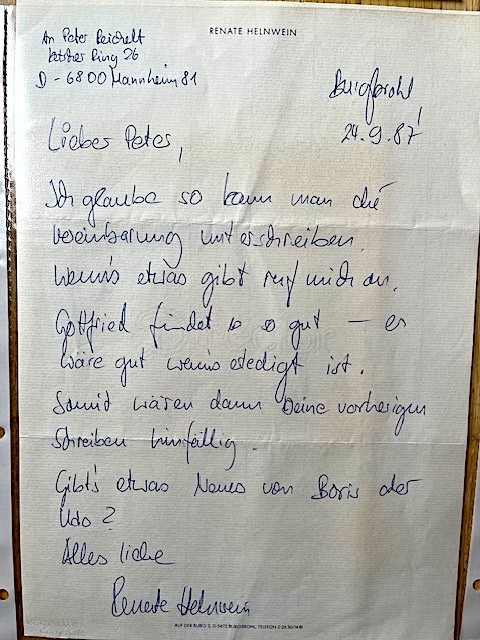 RENATE HELNWEIN
An Peter Reichelt
Ring 26
D - 6800 Mannheim 81
Burgbrohl
24.9.87
Lieber Peter,
Ich glaube so kann man die
Vereinbarung unterschreiben.
Wenn's etwas gibt ruf mich an.
Gottfried findet es so gut – es
wäre gut wenn's erledigt ist.
Somit wären dann Deine vorherigen
Schreiben hinfällig.
Gibt's etwas Neues von Boris oder
Udo?
Alles liebe
Renate Helnwein
AUF DER BURG 2, D-5472 BURGBROHL, TELEFON